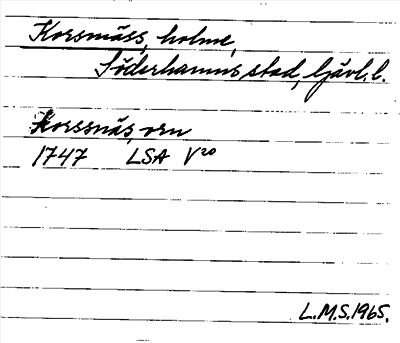 Korsnäss, holme,
Söderhamns stad, Gävl. l.
Korssnäs orn
1747 LSA V20
L.M.S. 1965.